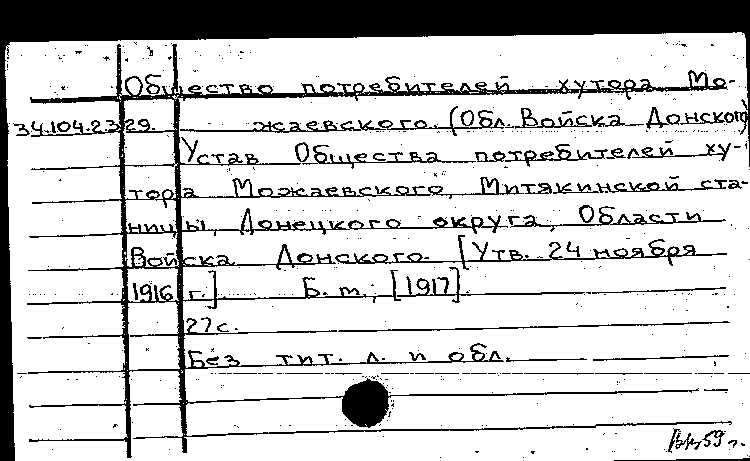 Общество потребителей хутора Мо-
34.104.23.29. жаевского. (Обл. Войска Донского)
Устав Общества потребителей ху-
тора Можаевского, Митякинской ста-
ницы, Донецкого округа, Области
Войска Донского. [Утв. 24 ноября
1916 г.]. Б. т.; [1917].
27 с.
Без тит. л. и обл.